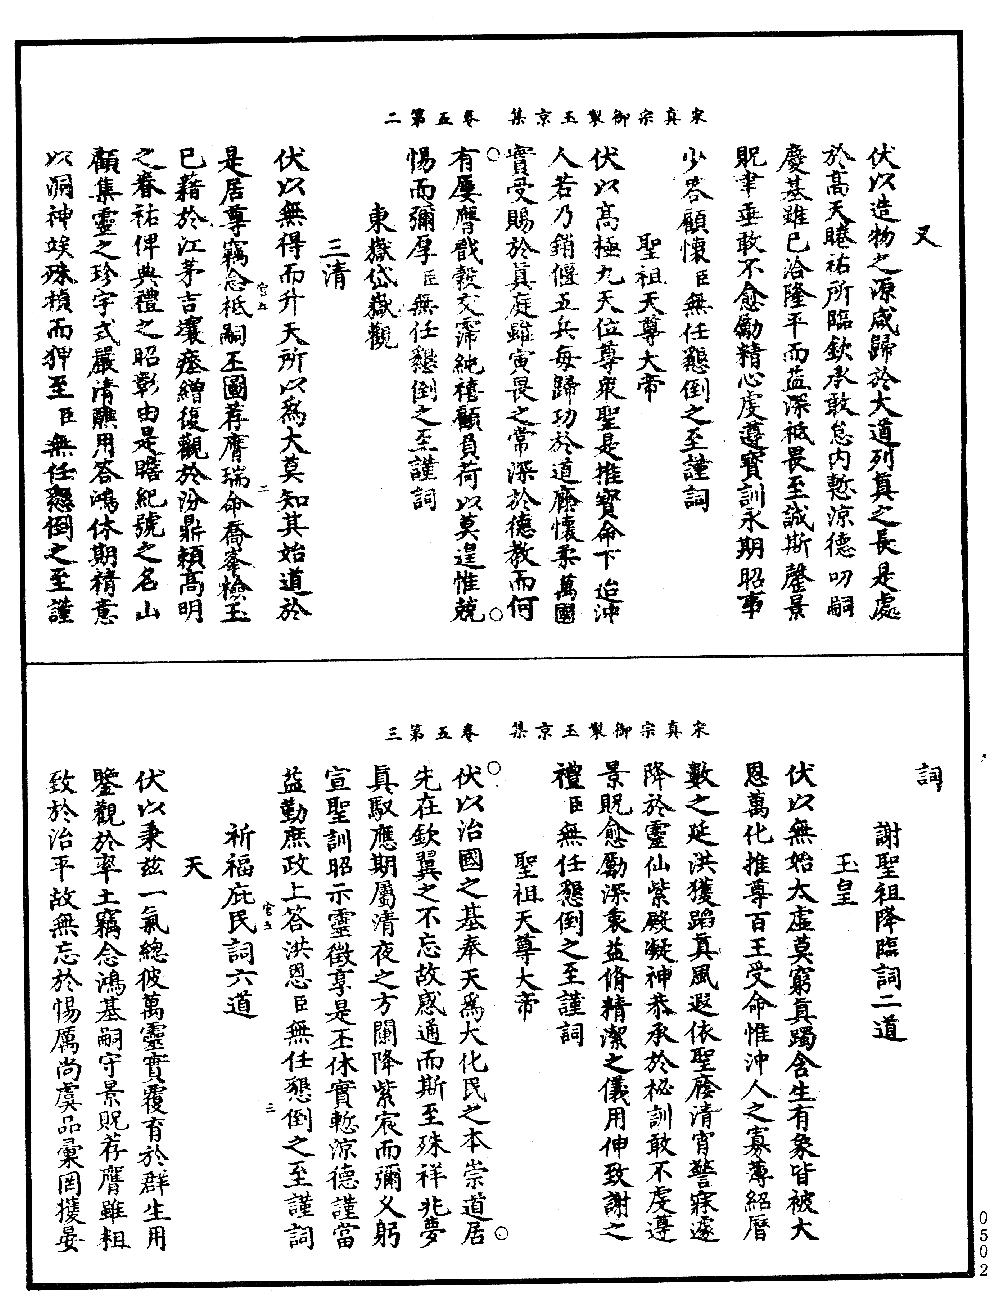 宋真宗御製玉京集　卷五第二
又
伏以造物之源咸歸於大道列真之長是處
於高天睠祐所臨欽承敢怠內慙涼德叨嗣
慶基雖已洽隆平而益深祗畏至誠斯罄景
貺聿垂敢不愈勵精心虔遵寶訓永期昭事
少答顧懷臣無任懇倒之至謹詞
聖祖天尊大帝
伏以高極九天位尊衆聖是推寶命下迨沖
人若乃銷偃五兵每歸功於道廕懷柔萬國
實受賜於真庭雖寅畏之常深於德教而何
有屢膺戩穀交霈純禧顧負荷以莫遑惟兢
惕而彌厚臣無任懇倒之至謹詞
東嶽岱嶽觀
三清
伏以無得而升天所以為大莫知其始道於
是居尊竊念祗嗣丕圖荐膺瑞命喬峯檢玉
已藉於江茅吉壤瘞繒復觀於汾鼎賴高明
之眷祐俾典禮之昭彰由是瞻紀號之名山
顧集靈之珍宇式嚴清醮用答鴻休期精意
以洞神竢殊禎而狎至臣無任懇倒之至謹
宫五　二
宋真宗御製玉京集　卷五第三
詞
謝聖祖降臨詞二道
玉皇
伏以無始太虛莫窮真躅含生有象皆被大
恩萬化推尊百王受命惟沖人之寡薄紹曆
數之延洪獲蹈真風遐依聖廕清宵警寐遽
降於靈仙紫殿凝神恭承於祕訓敢不虔遵
景貺愈勵深衷益脩精潔之儀用伸致謝之
禮臣無任懇倒之至謹詞
聖祖天尊大帝
伏以治國之基奉天為大化民之本崇道居
先在欽翼之不忘故感通而斯至殊祥兆夢
真馭應期屬清夜之方闌降紫宸而彌义躬
宣聖訓昭示靈徵享是丕休實慙涼德謹當
益勤庶政上答洪恩臣無任懇倒之至謹詞
祈福庇民詞六道
天
伏以秉茲一氣總彼萬靈實覆育於群生用
鑒觀於率土竊念鴻基嗣守景貺荐膺雖粗
致於治平故無忘於惕厲尚虞品彙罔獲晏
宫五　三
0502